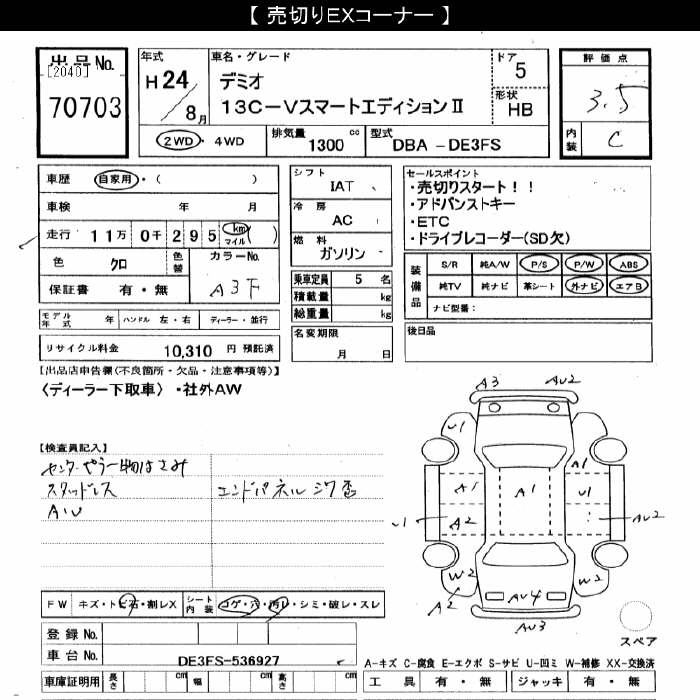 【 売切りEXコーナー 】
出品No.
[2040]
70703
年式
H 24
8月
車名・グレード
デミオ
13C-VスマートエディションⅡ
ドア
5
形状
HB
2WD・4WD
排気量 1300 cc
型式 DBA-DE3FS
評価点
3.5
内装 C
車歴 自家用・( )
車検 年 月
走行 11万 0千 295 km マイル ( )
色 クロ 色替
カラーNo. A3F
保証書 有・無
シフト
IAT
冷房
AC
燃料
ガソリン
乗車定員 5 名
積載量 kg
総重量 kg
名変期限
月 日
セールスポイント
・売切りスタート!!
・アドバンストキー
・ETC
・ドライブレコーダー(SD欠)
装備品
S/R 純A/W P/S P/W ABS
純TV 純ナビ 革シート 外ナビ エアB
ナビ型番:
後日品
モデル年式 年 ハンドル 左・右 ディーラー・並行
リサイクル料金 10,310 円 預託済
【出品店申告欄(不良箇所・欠品・注意事項等)】
〈ディーラー下取車〉・社外AW
【検査員記入】
スタッドレス
エンドパネル
AU
FW キズ・トビ石・割レX
シート内装 コゲ・穴・汚レ・シミ・破レ・スレ
登録No.
車台No. DE3FS-536927
車庫証明用 長さ cm 幅 cm 高さ cm
A3 AU2
U1
A1
A1 A1 U1
U1 A2 AU2
W2 W2
A2 AU4
AU3
スペア
A-キズ C-腐食 E-エクボ S-サビ U-凹ミ W-補修 XX-交換済
工具 有・無 ジャッキ 有・無